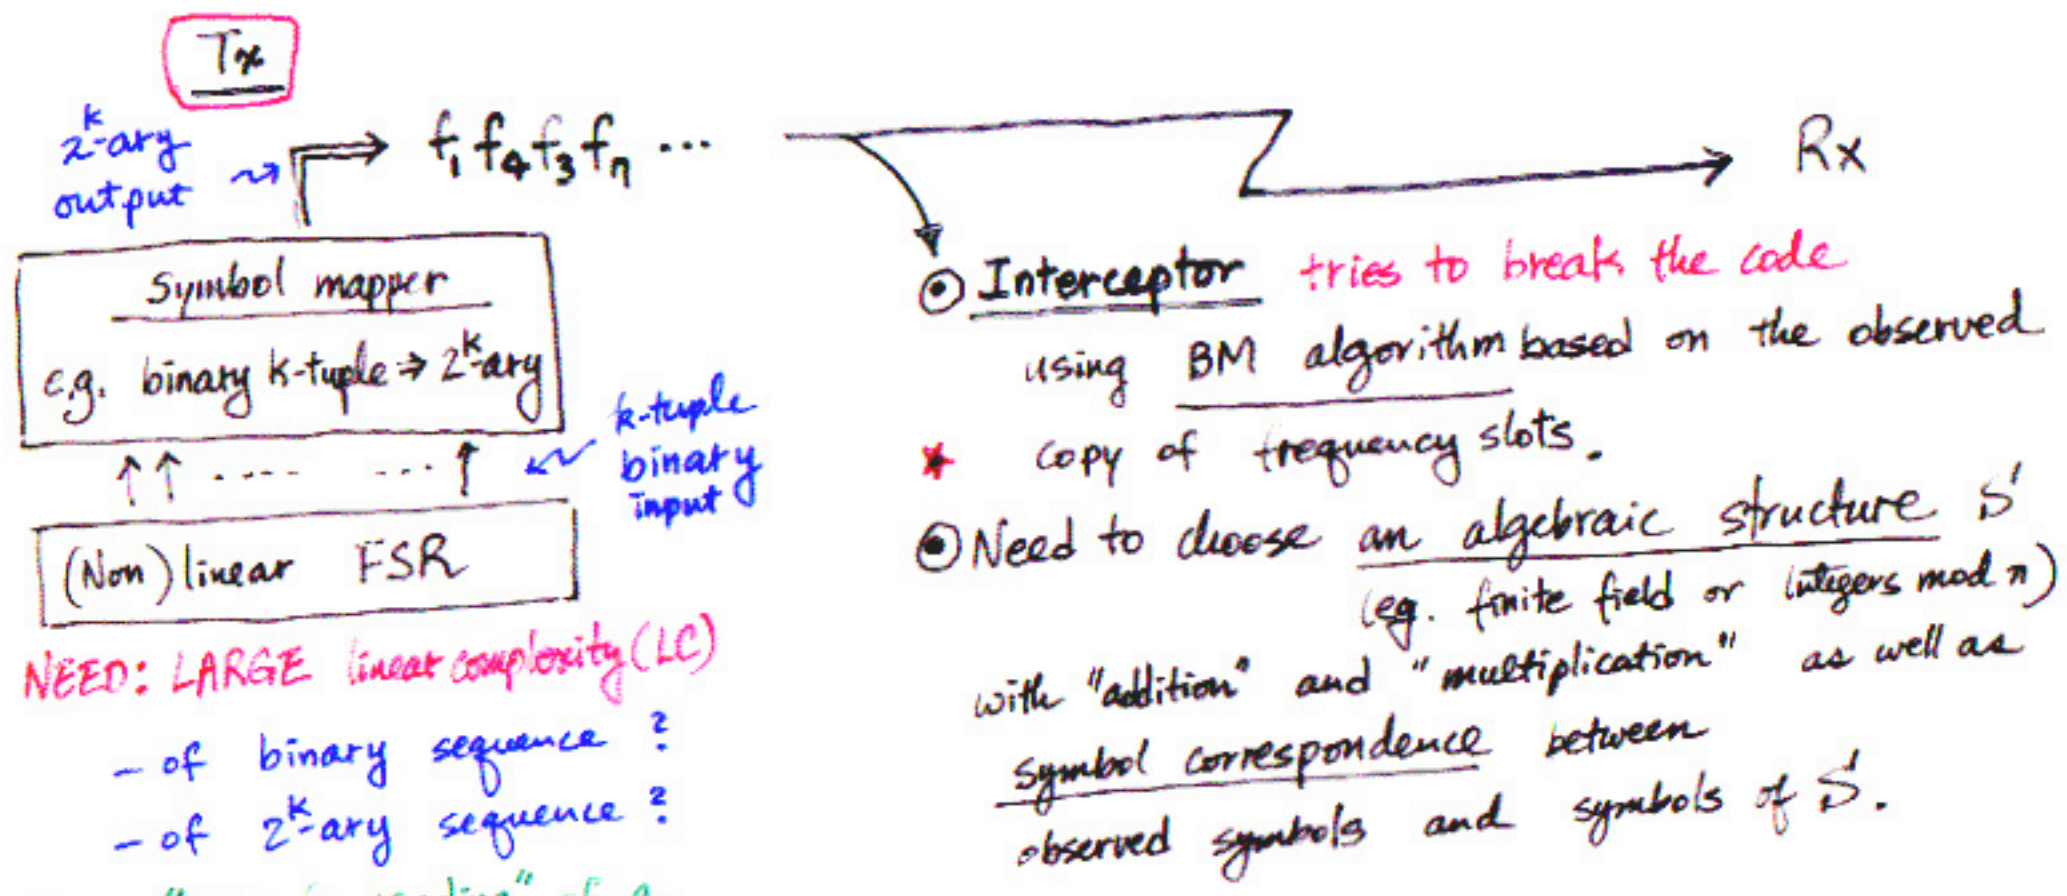 Tx
2^k-ary
output
f₁ f₄ f₃ f₇ ...
Rx
Symbol mapper
e.g. binary k-tuple → 2^k-ary
k-tuple
binary
input
(Non)linear FSR
NEED: LARGE linear complexity (LC)
- of binary sequence ?
- of 2^k-ary sequence ?
Interceptor tries to break the code
using BM algorithm based on the observed
* copy of frequency slots.
Need to choose an algebraic structure S
(eg. finite field or integers mod n)
with "addition" and "multiplication" as well as
symbol correspondence between
observed symbols and symbols of S.